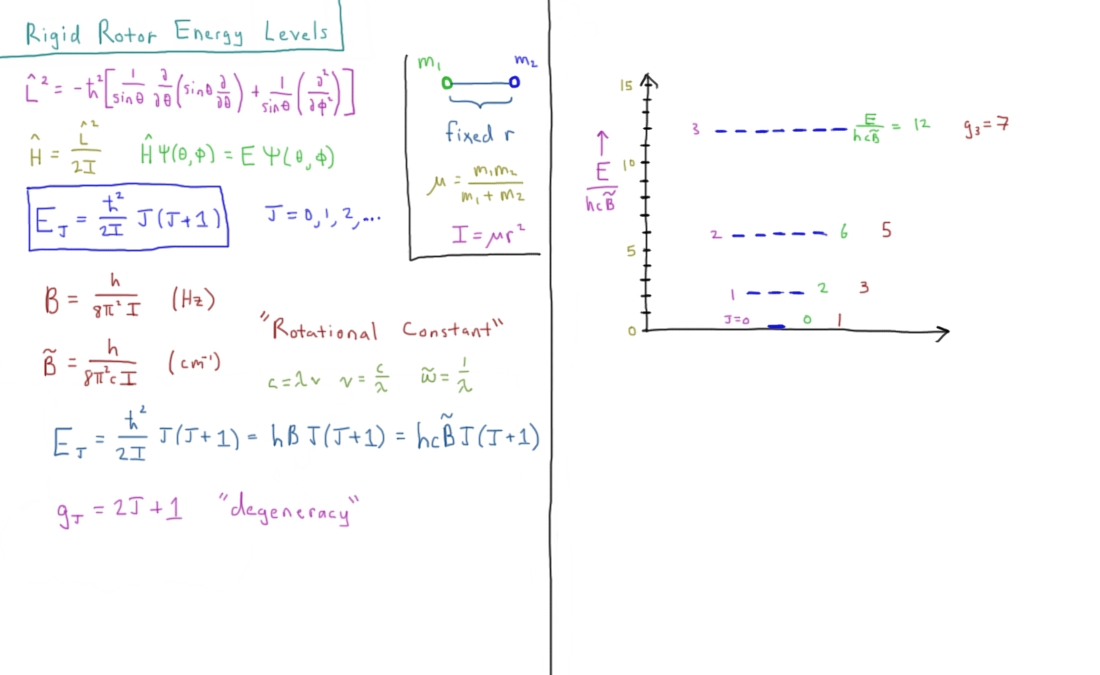 Rigid Rotor Energy Levels
L̂² = -ħ²[1/sinθ ∂/∂θ(sinθ ∂/∂θ) + 1/sinθ(∂²/∂ϕ²)]
Ĥ = L̂²/2I   ĤΨ(θ,ϕ) = EΨ(θ,ϕ)
E_J = ħ²/2I J(J+1)   J=0,1,2,...
m₁   m₂
fixed r
μ = m₁m₂/m₁+m₂
I = μr²
B = h/8π²I (Hz)
B̃ = h/8π²cI (cm⁻¹)
"Rotational Constant"
c=λν   ν=c/λ   ω̃=1/λ
E_J = ħ²/2I J(J+1) = hBJ(J+1) = hcB̃J(J+1)
g_J = 2J+1   "degeneracy"
↑
E/hcB̃
15
10
5
0
3   E/hcB̃ = 12   g₃=7
2   6   5
1   2   3
J=0   0   1